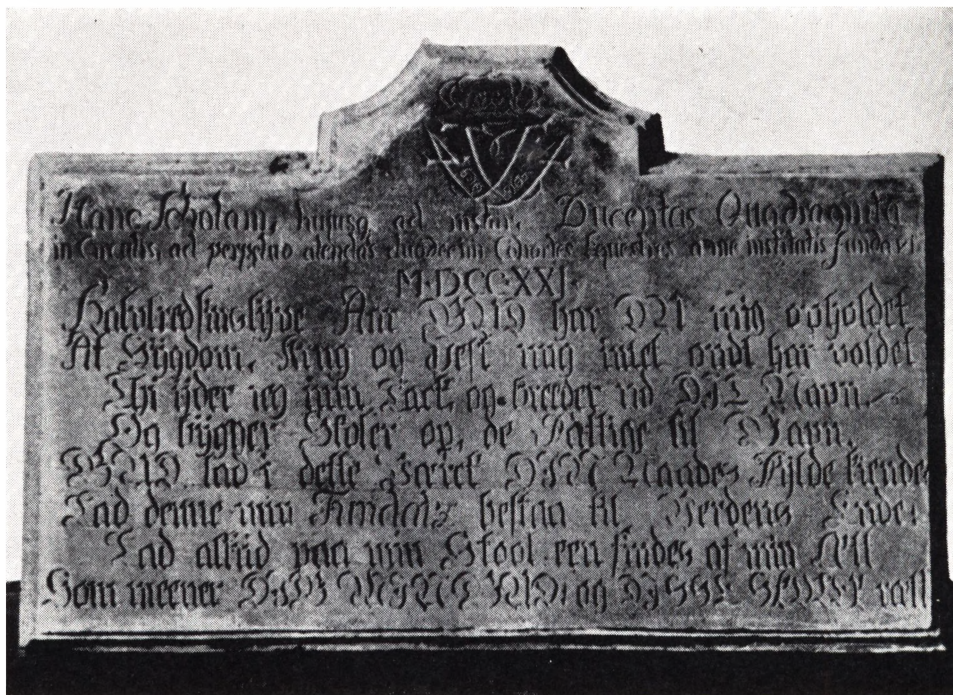 Hanc Scholam, hujusq ad instar, Ducentas Quadraginta
in Circulis, ad perpetuo alendas duodecim Cohortes Equestres a me institutis fundavi
M·DCC·XXI
Halvtredsinstÿve Aar GUD har DU mig opholdet
At Sÿgdom, Krig og Pest mig intet ondt har voldet
Thi ÿder ieg min Tack, og breeder ud DIT Navn
Og bÿgger Skoler op, de Fattige til Gavn.
GUD lad i dette Verck DIN Naades Fÿlde kiendes
Lad denne min Fundatz bestaa til Verdens Ende
Lad altiid paa min Stool een findes af min Æt
Som meener DIG MIN GUD og DISSE SKOLER ræt